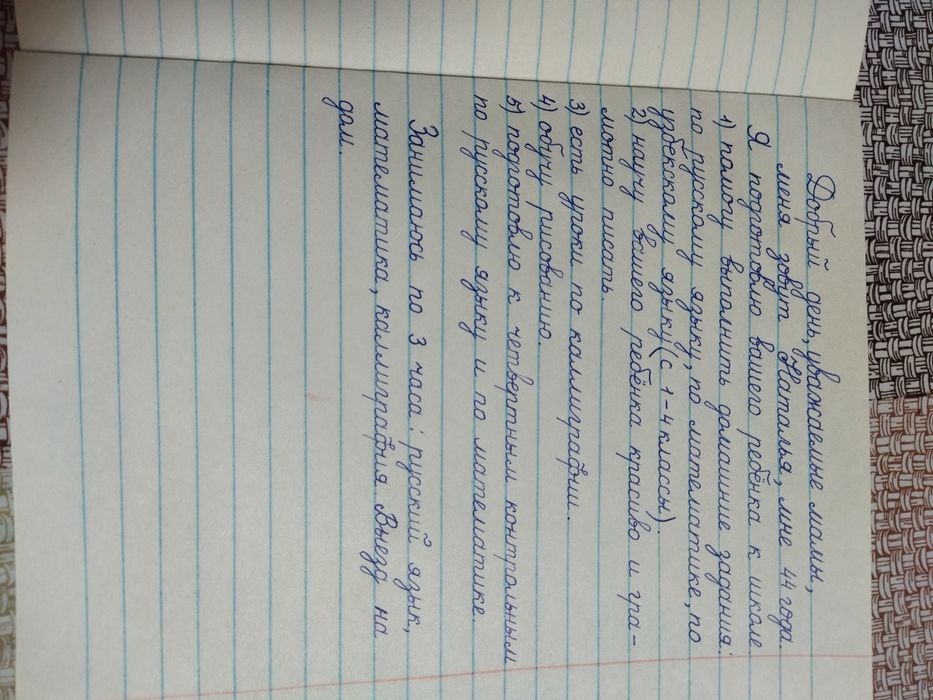 Добрый день, уважаемые мамы,
меня зовут Наталья, мне 44 года.
Я подготовлю вашего ребёнка к школе
1) помогу выполнить домашние задания:
по русскому языку, по математике, по
узбекскому языку (с 1-4 классы).
2) научу вашего ребёнка красиво и гра-
мотно писать.
3) есть уроки по каллиграфии.
4) обучу рисованию.
5) подготовлю к четвертным контрольным
по русскому языку и по математике.
Занимаюсь по 3 часа: русский язык,
математика, каллиграфия. Выезд на
дом.